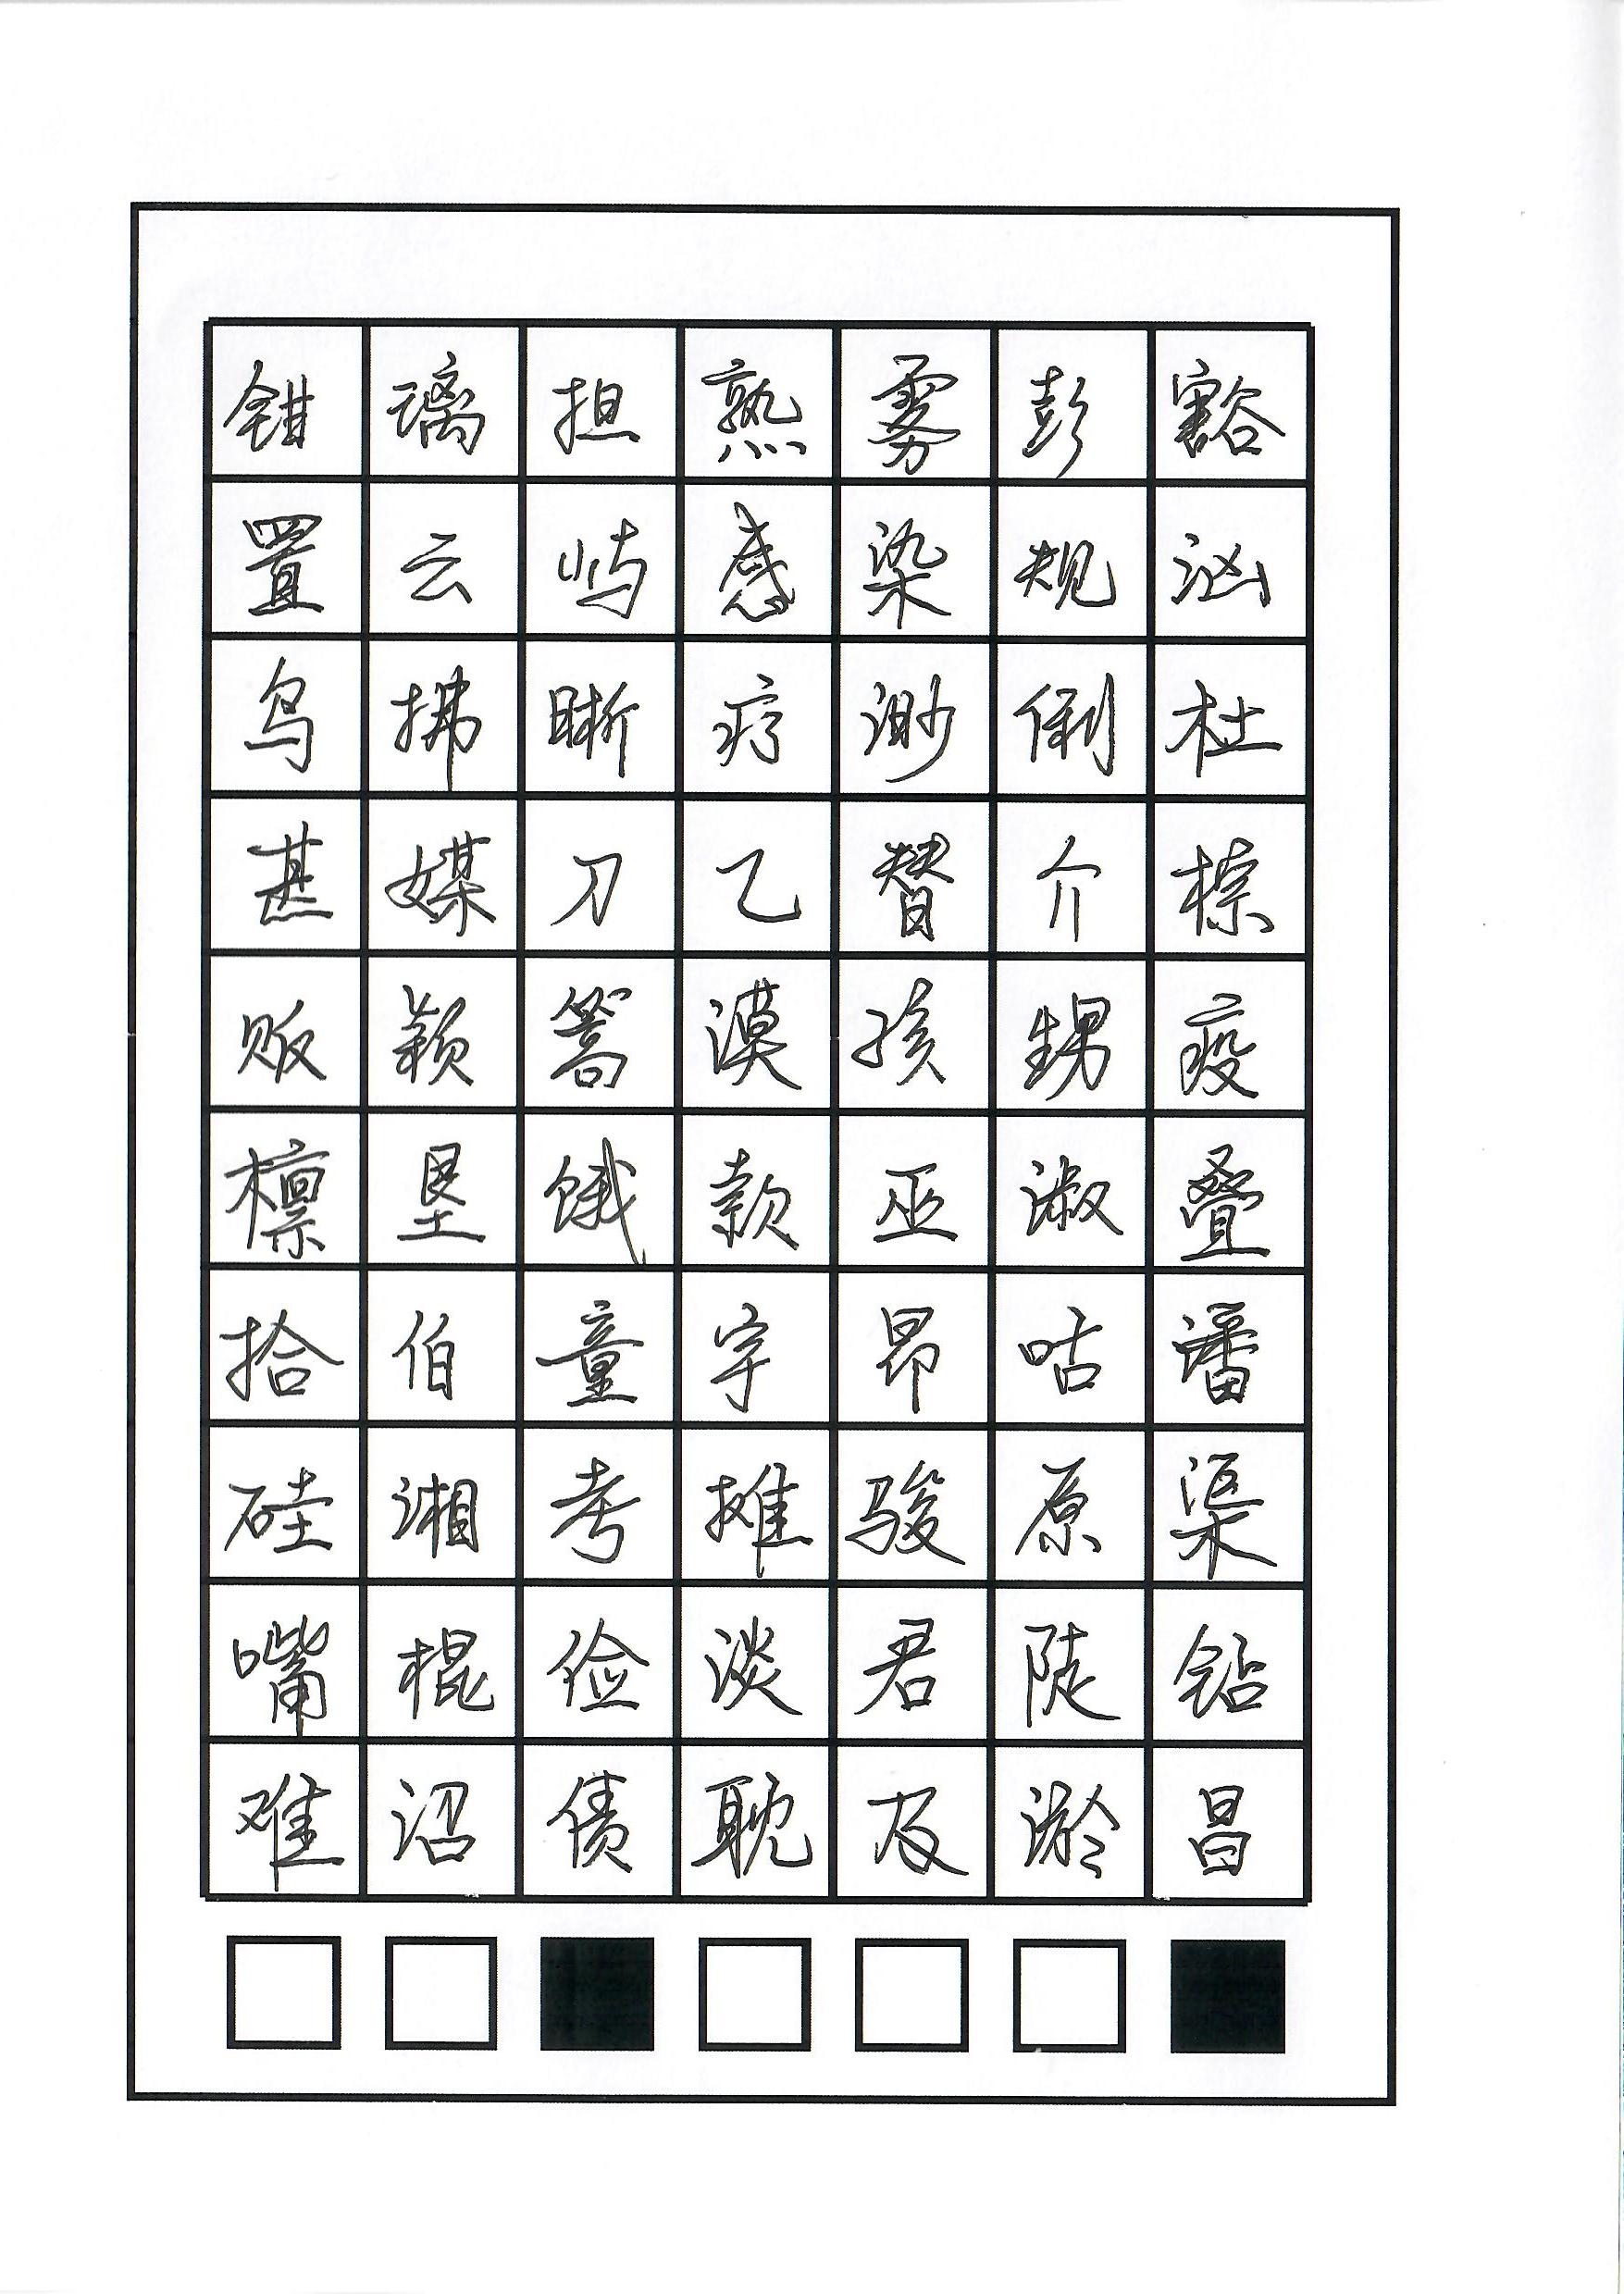 钳璃担熟雾彭豁
置云屿感染规汹
鸟拂晰疗渺俐杜
甚媒刀乙替介棕
贩颖篙漠孩甥疫
檩垦饿款巫淑叠
拾伯童字昂咕潘
硅湘考摊骏原渠
嘴棍俭淡君陡钻
难沼债耽及淤昌